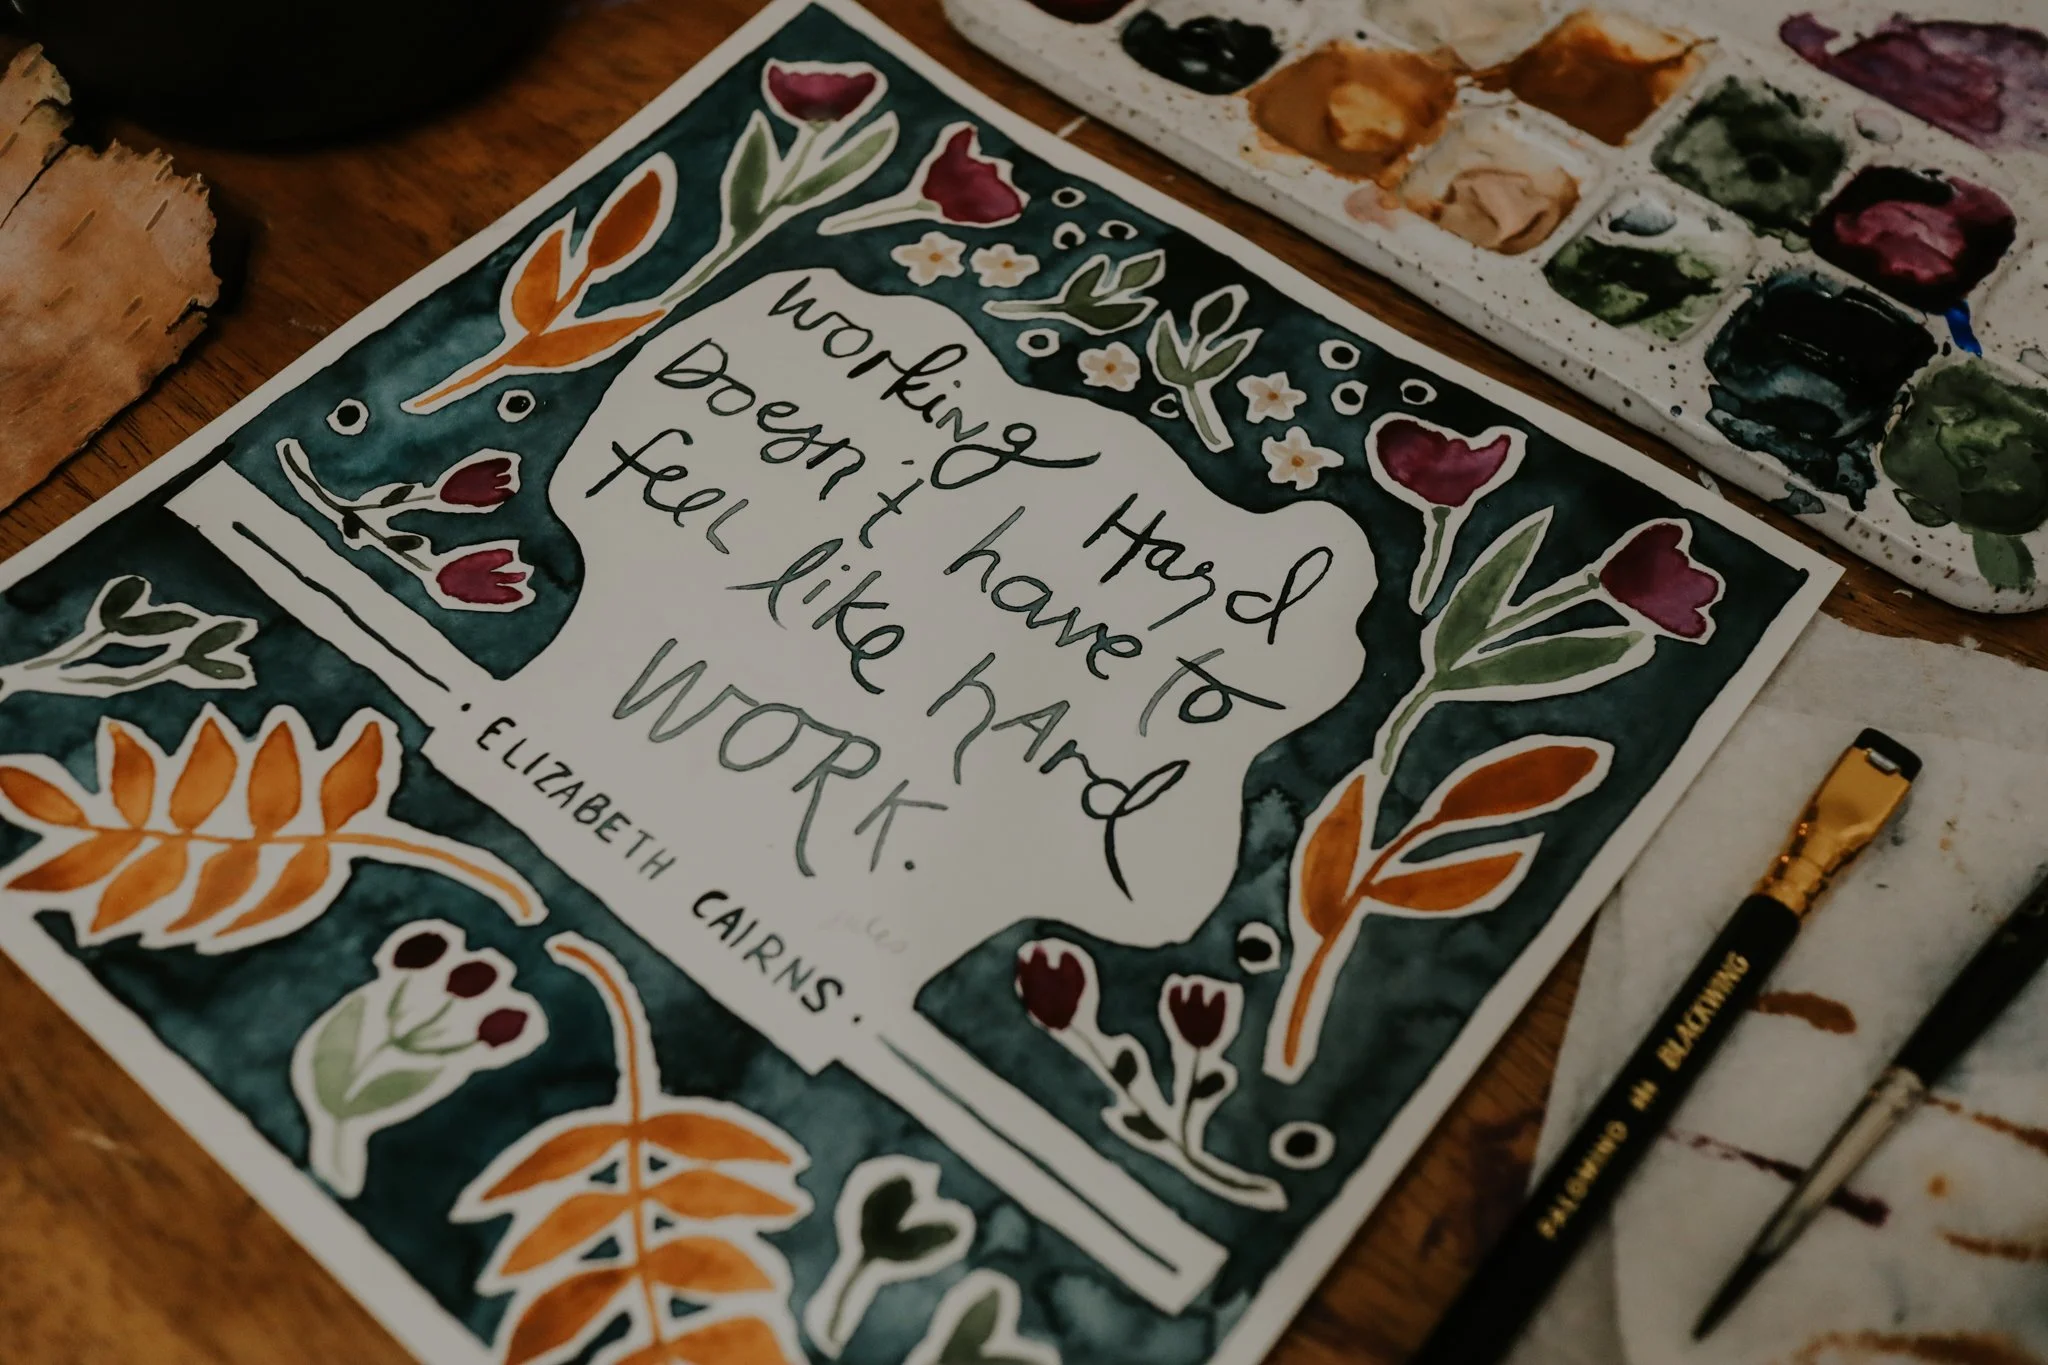 working Hard
Doesn't have to
feel like hArd
WORK.
· ELIZABETH CAIRNS ·
jules
PALOMINO BLACKWING